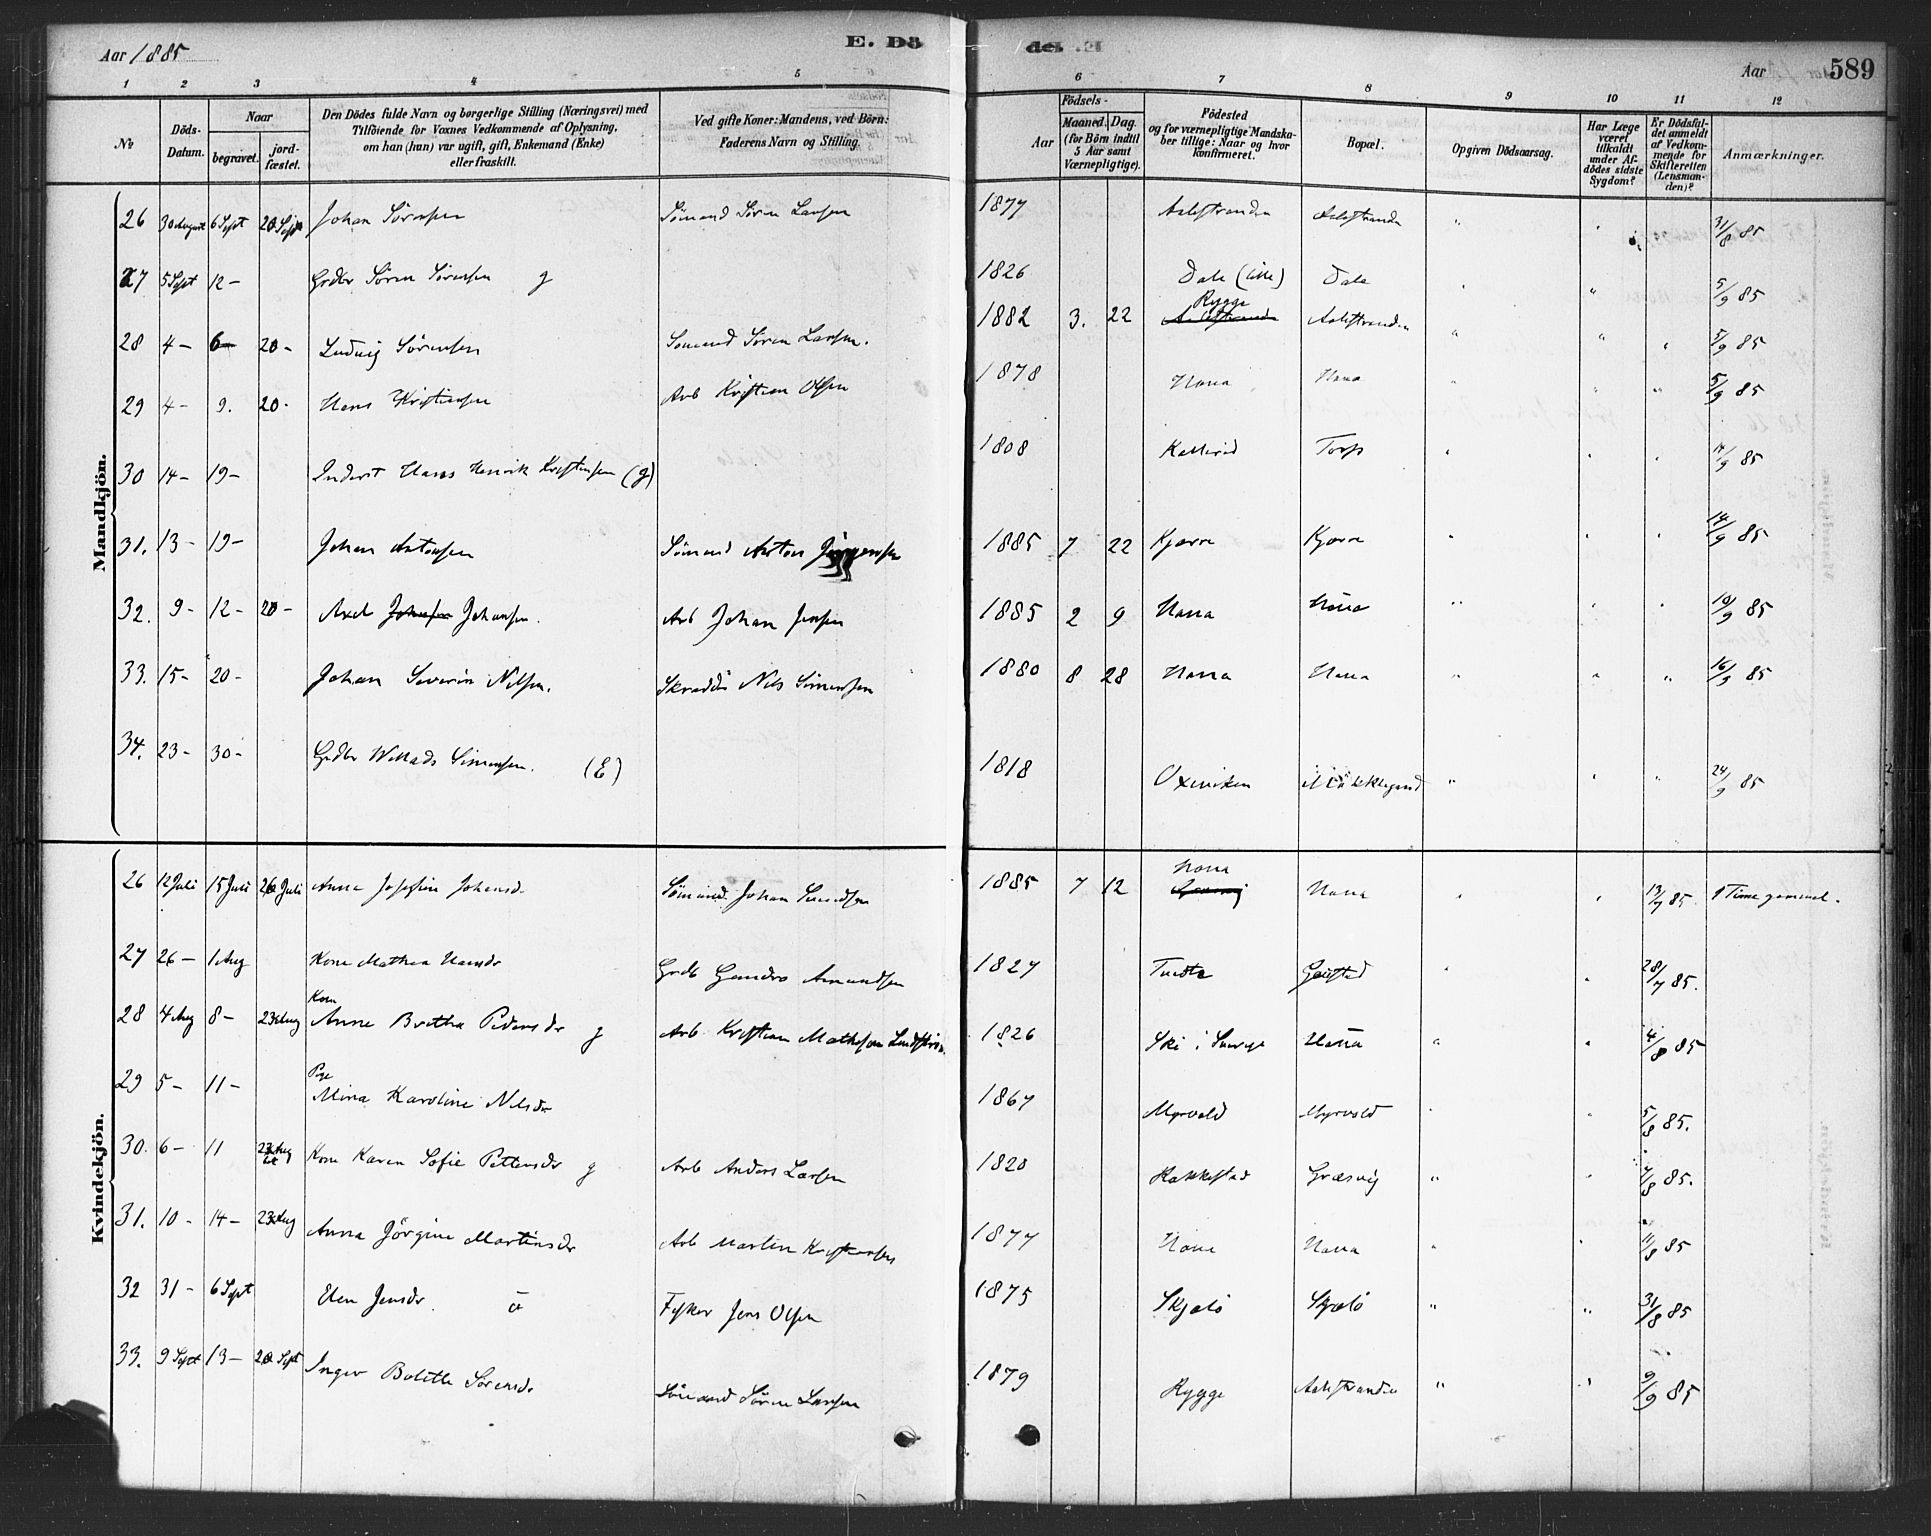 Aar 1885
E. Dö
589
Aar
1 2 3 4 5 6 7 8 9 10 11 12
No
Döds-Datum.
Naar
begravet.
jord-fæstet.
Den Dödes fulde Navn og borgerlige Stilling (Næringsvei) med
Tilföiende for Voxnes Vedkommende af Oplysning,
om han (hun) var ugift, gift, Enkemand (Enke)
eller fraskilt.
Ved gifte Koner: Mandens, ved Börn:
Faderens Navn og Stilling.
Födsels-
Aar
Maaned. Dag.
(for Börn indtil
5 Aar samt
Værnepligtige).
Födested
og for værnepligtige Mandska-
ber tillige: Naar og hvor
konfirmeret.
Bopæl.
Opgiven Dödsaarsag.
Har Læge
været
tilkaldt
under Af-
dödes sidste
Sygdom?
Er Dödsfal-
det anmeldt
af Vedkom-
mende for
Skifteretten
(Lensman-
den)?
Anmærkninger.
Mandkjön.
26 30 August 6 Sept 20 Sept Johan Sörensen Sömand Sören Larsen 1877 Aalestranden Aalestranden " " 31/8 85
27 5 Sept 12 - Grdbr Sören Sörensen g 1826 Dale (ille) Dale " " 5/9 85
28 4 - 6 20 - Ludvig Sörensen Sömand Sören Larsen. 1882 3. 22 Rygge Aalestranden " " " 5/9 85
29 4 - 9. 20 - Hans Kristiansen Arb Kristian Olsen 1878 Hona Hona " " " 5/9 85
30 14 - 19 - Inderst Hans Henrik Kristensen (g) 1808 Kallerød Torp " " " 14/9 85
31. 13 - 19 - Johan Antonsen Sömand Anton Jörgensen 1885 7 22 Kjærra Kjærra " " " 14/9 85
32. 9 - 12 - 20 - Axel Johansen. Arb Johan Jensen 1885 2 9 Hona Hona " " " 10/9 85
33. 15 - 20 - Johan Severin Nilsen. Skrædder Nils Simensen 1880 8 28 Hona Hona " " " 16/9 85
34. 23 - 30 - Grdbr Willads Simensen. (E) 1818 Oxeviken " " " 24/9 85
Kvindekjön.
26 12 Juli 15 Juli 26 Juli Anna Josefine Johansd. Sömand Johan 1885 7 12 Hona Hona " " 13/7 85. 1 Time gammel.
27 26 - 1 Aug Kone Mathea Hansdr Grdb Amundsen 1827 28/7 85.
28 4 Aug 8 - 23 Aug Kone Anne Britha Pedersdr g Arb. Kristian Mathisen Lindström. 1826 Ski i Sverge Hona " " 4/8 85
29 5 - 11 - Pige Mina Karoline Nilsdr 1867 Myrvold Myrvold " " 5/8 85.
30. 6 - 11 23 Aug Kone Karen Sofie Pettersdr g Arb Anders Larsen 1820 Rakkestad Græsvig " " 7/8 85.
31. 10 - 14 - 23 Aug Anna Jörgine Martinsdr Arb Martin Kristiansen 1877 Hona Hona " " 11/8 85
32 31 - 6 Sept Elen Jensdr. Fisker Jens Olsen 1875 Skjelö Skjelö " " 31/8 85
33. 9 Sept 13 - 20 Sept Inger Bolette Sörensdr Sömand Sören Larsen 1879 Rygge Aalestranden " " 9/9 85